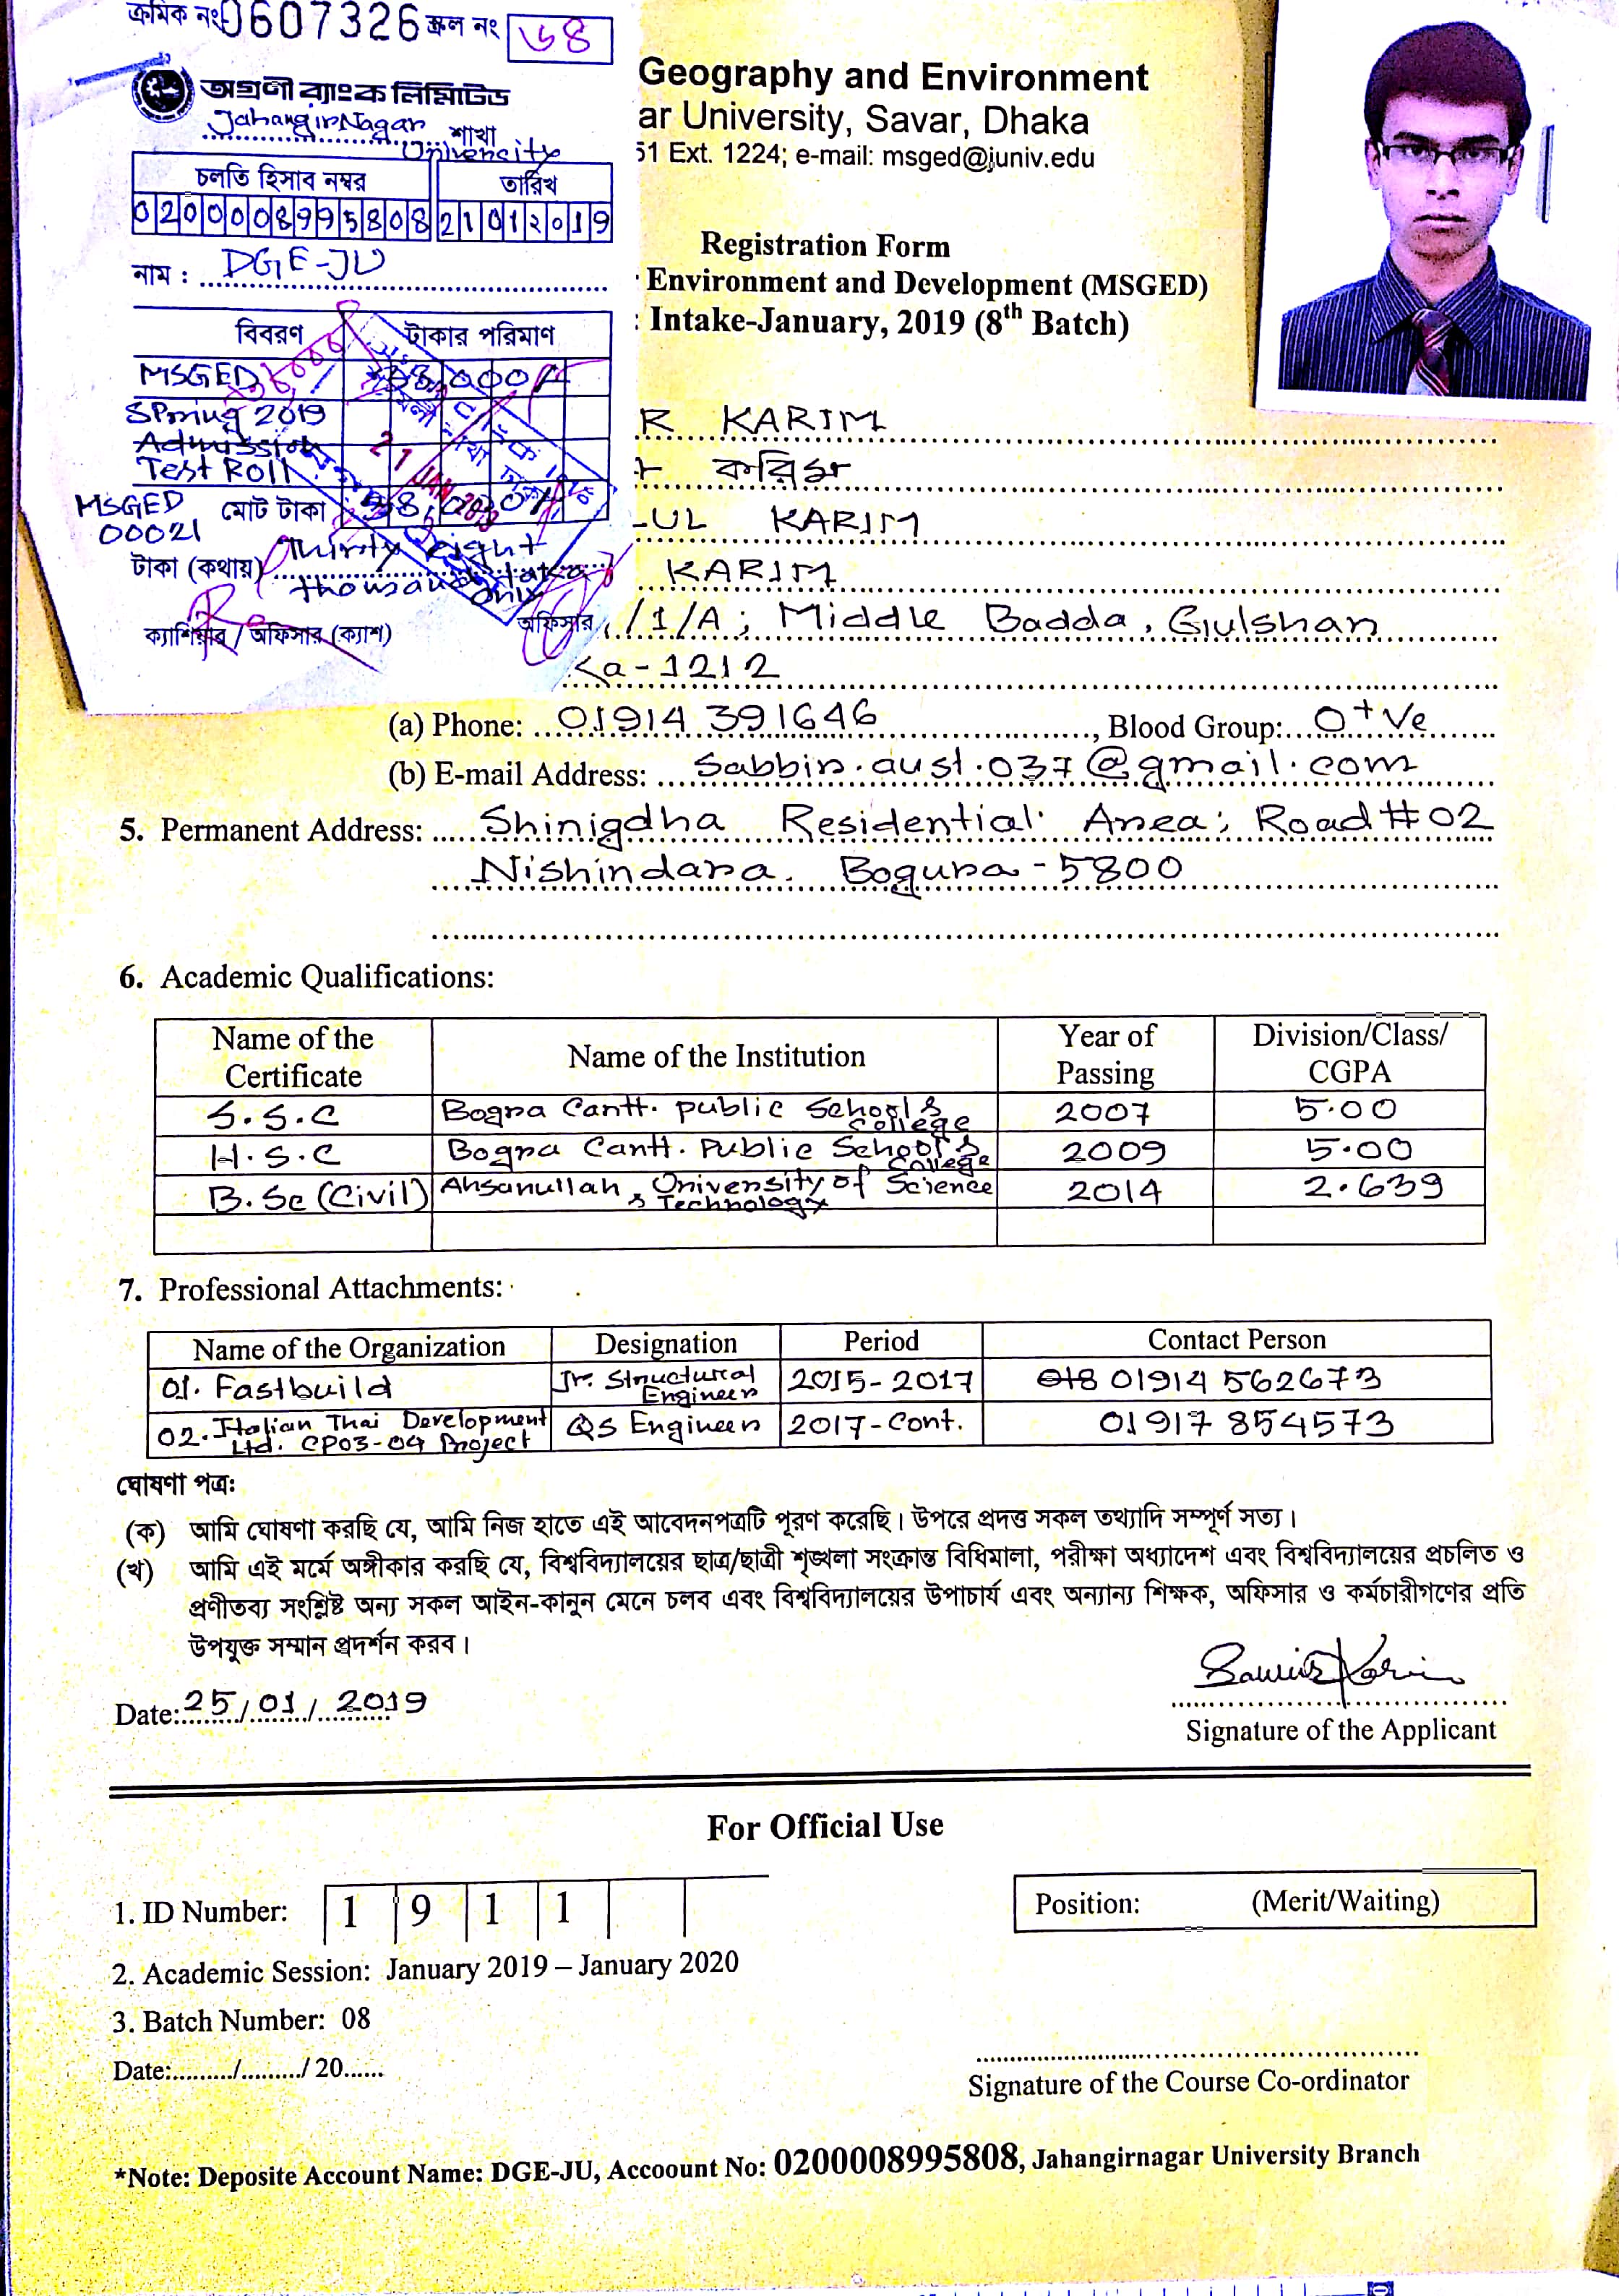 ক্রমিক নং 0607326 স্ক্রল নং ৬8
অগ্রণী ব্যাংক লিমিটেড
JahangirNagar University শাখা
চলতি হিসাব নম্বর তারিখ
0200008995808 21012019
নাম : DGE-JU
বিবরণ টাকার পরিমাণ
MSGED 38,000/-
Spring 2019
Admission
Test Roll
21 JAN 2019
MSGED
00021
মোট টাকা 38,000/-
টাকা (কথায়) Thirty eight
thousand taka
only
ক্যাশিয়ার / অফিসার (ক্যাশ) অফিসার
Geography and Environment
ar University, Savar, Dhaka
51 Ext. 1224; e-mail: msged@juniv.edu
Registration Form
Environment and Development (MSGED)
: Intake-January, 2019 (8th Batch)
R KARIM
করিম
UL KARIM
KARIM
/1/A; Middle Badda, Gulshan
ka-1212
(a) Phone: 01914 391646, Blood Group: O+ve
(b) E-mail Address: Sabbir.aust.037@gmail.com
5. Permanent Address: Shinigdha Residential Area; Road#02
Nishindara. Bogura-5800
6. Academic Qualifications:
Name of the Certificate Name of the Institution Year of Passing Division/Class/ CGPA
S.S.C Bogra Cantt. public School & College 2007 5.00
H.S.C Bogra Cantt. Public School & College 2009 5.00
B.Sc (Civil) Ahsanullah University of Science & Technology 2014 2.639
7. Professional Attachments:
Name of the Organization Designation Period Contact Person
01. Fastbuild Jr. Structural Engineer 2015-2017 01914 562673
02. Italian Thai Development Ltd. CP03-04 Project QS Engineer 2017-Cont. 01917 854573
ঘোষণা পত্র:
(ক) আমি ঘোষণা করছি যে, আমি নিজ হাতে এই আবেদনপত্রটি পূরণ করেছি। উপরে প্রদত্ত সকল তথ্যাদি সম্পূর্ণ সত্য।
(খ) আমি এই মর্মে অঙ্গীকার করছি যে, বিশ্ববিদ্যালয়ের ছাত্র/ছাত্রী শৃঙ্খলা সংক্রান্ত বিধিমালা, পরীক্ষা অধ্যাদেশ এবং বিশ্ববিদ্যালয়ের প্রচলিত ও
প্রণীতব্য সংশ্লিষ্ট অন্য সকল আইন-কানুন মেনে চলব এবং বিশ্ববিদ্যালয়ের উপাচার্য এবং অন্যান্য শিক্ষক, অফিসার ও কর্মচারীগণের প্রতি
উপযুক্ত সম্মান প্রদর্শন করব।
Date: 25/01/2019
Signature of the Applicant
For Official Use
1. ID Number: 1 9 1 1
Position: (Merit/Waiting)
2. Academic Session: January 2019 – January 2020
3. Batch Number: 08
Date:........./........./ 20......
Signature of the Course Co-ordinator
*Note: Deposite Account Name: DGE-JU, Accoount No: 0200008995808, Jahangirnagar University Branch